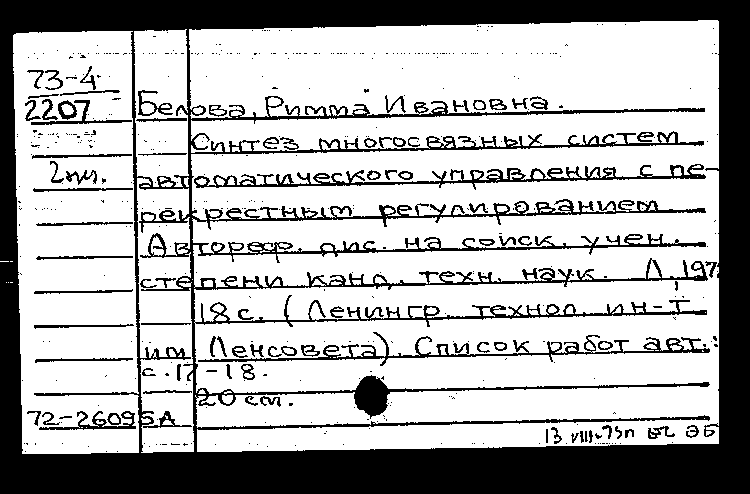 73-4
2207
Белова, Римма Ивановна.
Синтез многосвязных систем
2 экз.
автоматического управления с пе-
рекрестным регулированием
Автореф. дис. на соиск. учен.
степени канд. техн. наук. Л, 197
18 с. (Ленингр. технол. ин-т
им Ленсовета). Список работ авт.:
с. 17-18.
20 см.
72-26095А
13 VIII-73п ЭБ